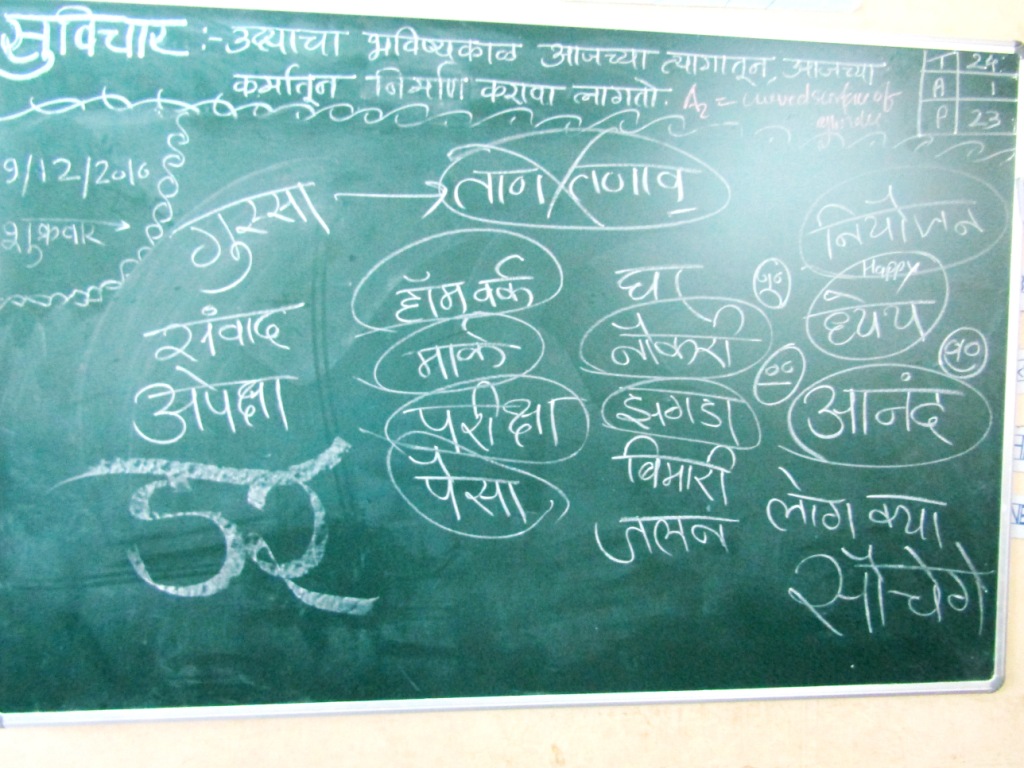 सुविचार :- उद्याचा भविष्यकाळ आजच्या त्यागातून, आजच्या
कर्मातून निर्माण करावा लागतो.
A₂ = curved surface of
cylinder
T 24
A 1
P 23
9/12/2010
शुक्रवार
गुस्सा → ताण तणाव
नियोजन
हॉमवर्क
घर
Happy
ध्येय
संवाद
मार्क
नौकरी
अपेक्षा
परीक्षा
झगडा
आनंद
पैसा
बिमारी
जलन
लोग क्या
सोचेगे
डर